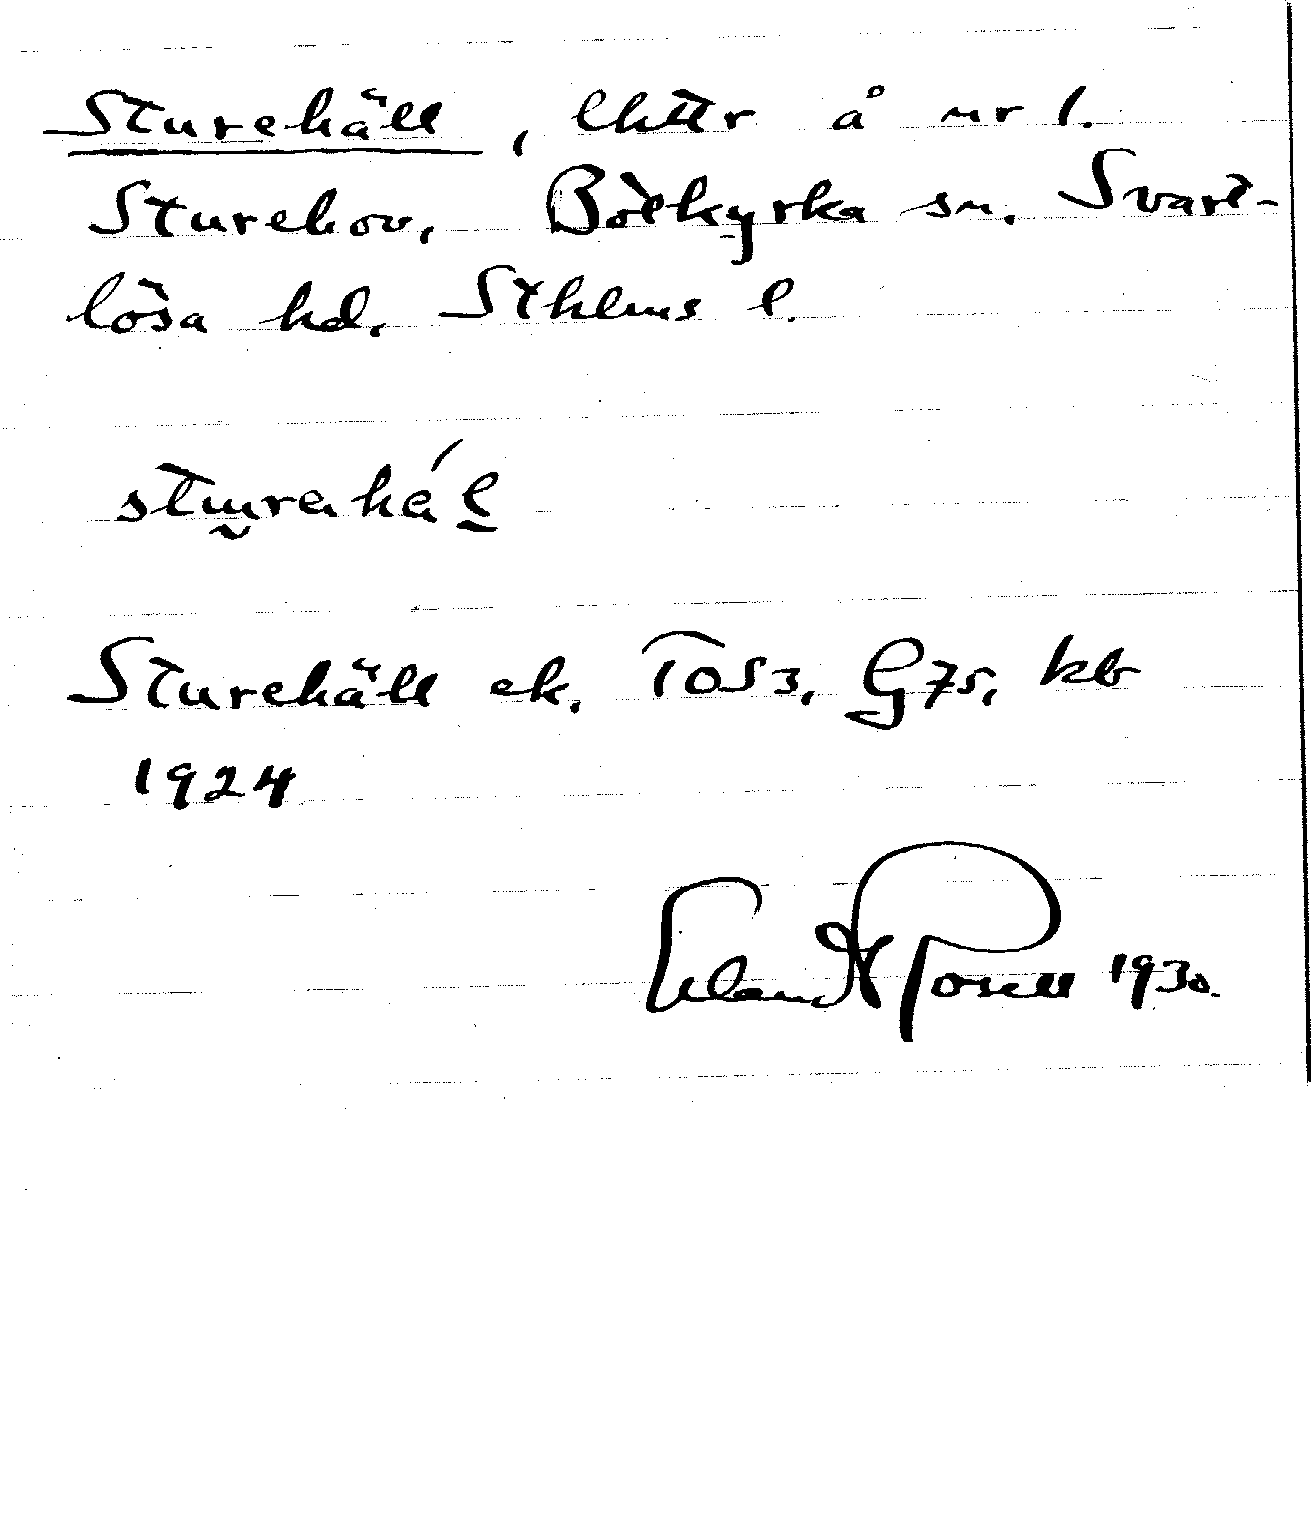 Sturehäll, lhttr å nr 1.
Sturehov, Botkyrka sn. Svart-
lösa hd, Sthlms l.
Sturehäll ek. TOS3, G75, kb
1924
Erland Rosell 1930.